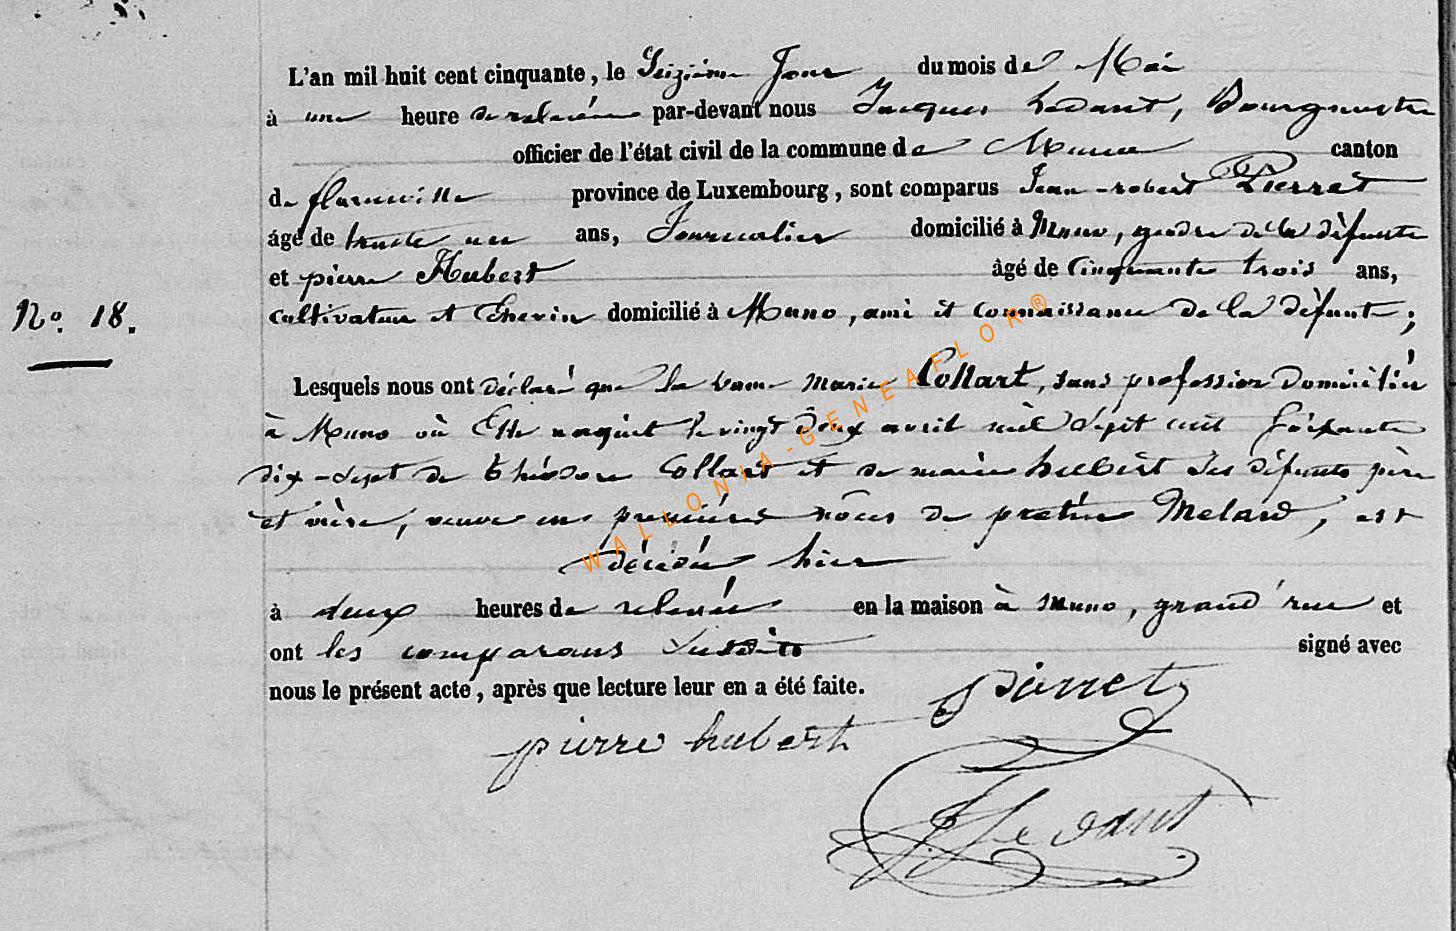 L'an mil huit cent cinquante, le Seizième Jour du mois de Mai
à une heure de relevée par-devant nous Jacques Ledant, Bourgmestre
officier de l'état civil de la commune de Muno canton
de florenville province de Luxembourg, sont comparus Jean-robert Pierret
âgé de trente un ans, Journalier domicilié à Muno, gendre de la défunte
et pierre Hubert âgé de Cinquante trois ans,
No. 18.
cultivateur et Echevin domicilié à Muno, ami et connaissance de la défunte;
Lesquels nous ont déclaré que la Dame Marie Collart, sans profession Domiciliée
à Muno où Elle naquit le vingt Deux avril mil Sept cent Soixante
dix-sept de Théodore Collart et de marie hubert Ses défunts père
et mère, veuve en premières nôces de Melard, est
décédée hier
à deux heures de relevée en la maison à Muno, grand'rue et
ont les comparans Susdits signé avec
nous le présent acte, après que lecture leur en a été faite.
Pierret
pierre hubert
J Ledant
WALLONIA-GENEAFLOR®